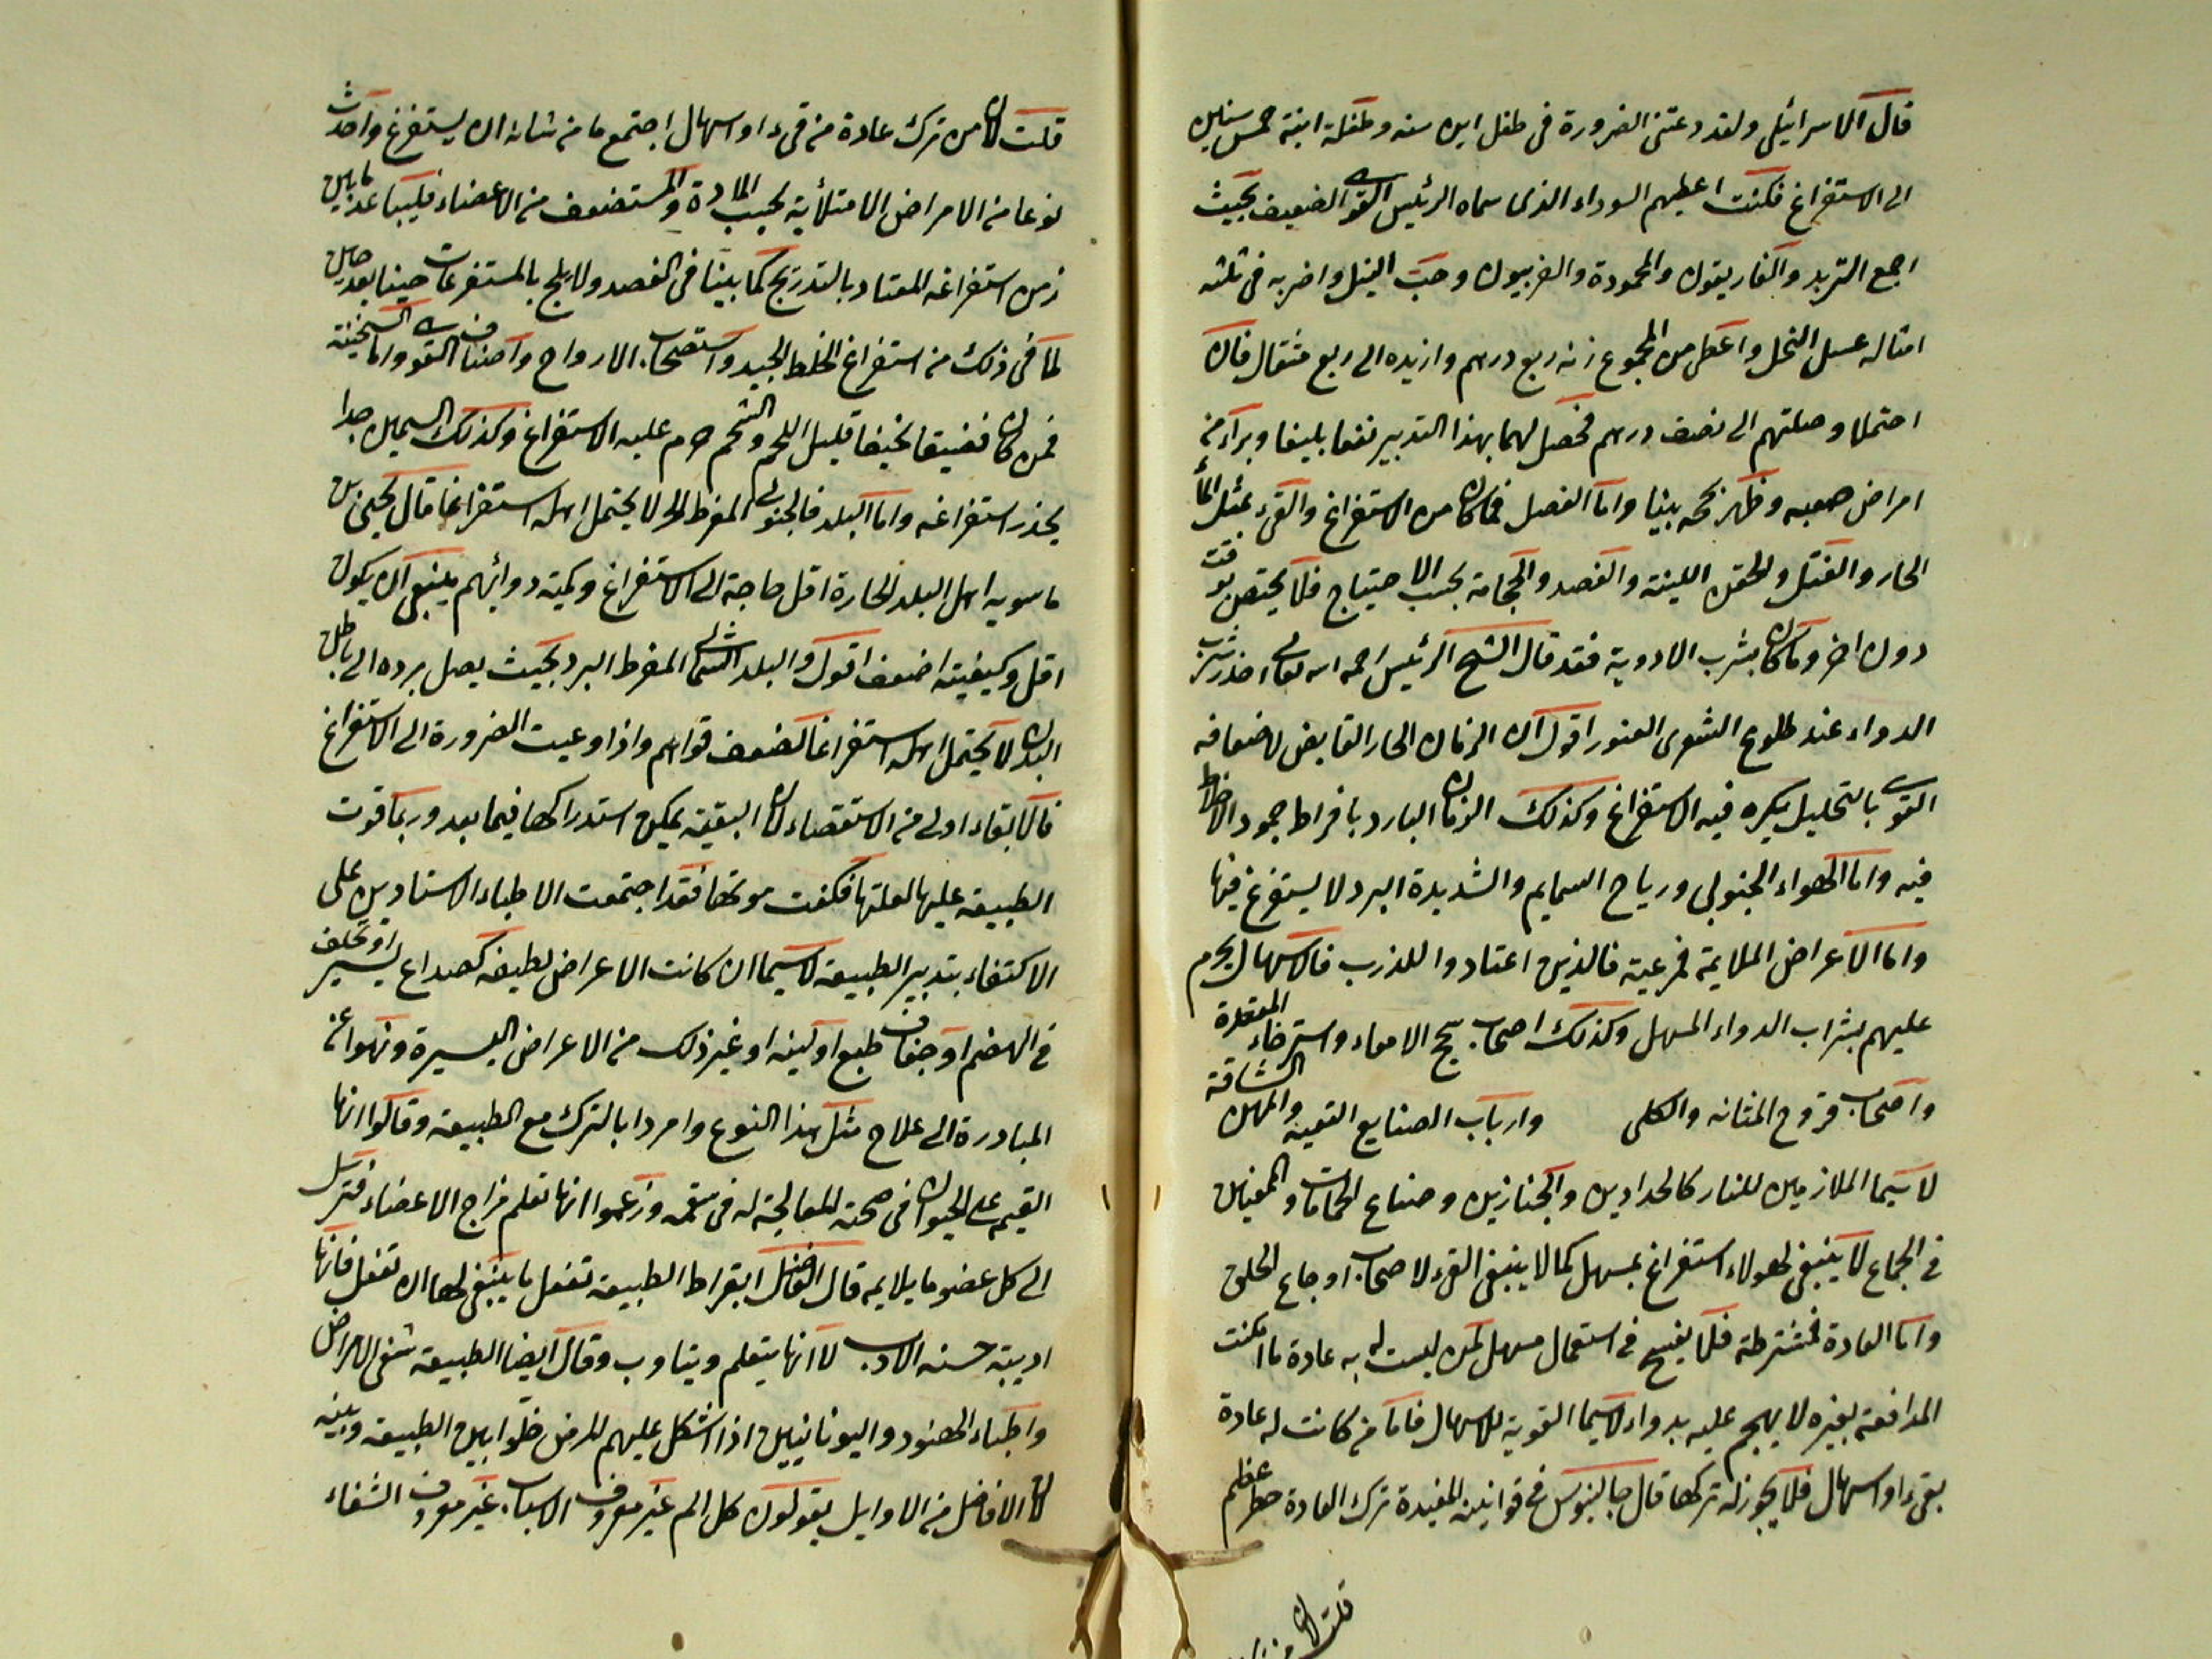 قال الاسرائيلى ولقد دعتنى الضرورة فى طفل ابن سنه وطفلة ابنة خمس سنين
الى الاستفراغ فكنت اعطيهم السوداء الذى سماه الرئيس القوى الضعيف بحيث
اجمع التربد والغاريقون والمحمودة والفربيون وحب النيل واضربه فى ثلثه
امثاله عسل النحل واعطى من المجموع زنه ربع درهم وازيده الى ربع مثقال فان
احتملا وصلتهم الى نصف درهم فحصل لهما بهذا التدبير نفعا بليغا وبراء من
امراض صعبه وظهر نجحه بينا واما الفصل فما كان من الاستفراغ والقىء بمثل الماء
الحار والفتل والحقن اللينة والفصد والحجامة بحسب الاحتياج فلا يختص بوقت
دون اخر وما كان بشرب الادوية فقد قال الشيخ الرئيس رحمه الله تعالى احذر شرب
الدواء عند طلوع الشعرى العبور اقول ان الزمان الحار القابض لاضعافه
القوى بالتحليل يكره فيه الاستفراغ وكذلك الزمان البارد بافراط جمود الاخلاط
فيه واما الهواء الجنوبى ورياح السمايم والشديدة البرد لا يستفرغ فيها
واما الاعراض الملايمة فمرعية فالذين اعتادوا للذرب فالاسهال يحرم
عليهم بشراب الدواء المسهل وكذلك اصحاب سحج الامعاء واسترخاء المقعدة
واصحاب قروح المثانه والكلى وارباب الصنايع التعبه والمهن الشاقة
لا سيما الملازمين للنار كالحدادين والخبازين وصناع الحمامات والمفنين
فى الجماع لا ينبغى لهولاء استفراغ بمسهل كما لا ينبغى القىء لاصحاب اوجاع الحلق
واما العادة فمشترطة فلا يفسح فى استعمال مسهل لمن ليست له به عادة ما امكنت
المدافعة بغيره لا يهجم عليه بدواء لا سيما القوية للاسهال فاما من كانت له عادة
بقىء او اسهال فلا يجوز له تركها قال جالينوس فى قوانينه المفيدة ترك العادة خطر عظيم
قلت لان من
قلت لان من ترك عادة من قىء او اسهال اجتمع ما من شانه ان يستفرغ واحدث
نوعا من الامراض الامتلأية بحسب المادة والمستضعف من الاعضاء فليباعد ما بين
زمن استفراغه المعتاد بالتدريج كما بينا فى الفصد ولا يلج بالمستفرغات حينا بعد حين
لما فى ذلك من استفراغ الخلط الجيد واستصحاب الارواح واصناف القوى واما السخنة
فمن كان قضيفا نحيفا قليل اللحم والشحم حرم عليه الاستفراغ وكذلك السمين جدا
يحذر استفراغه واما البلد فالجنوبى المفرط الحر لا يحتمل اهله استفراغا قال يحيى بن
ماسويه اهل البلد الحارة اقل حاجة الى الاستفراغ وكمية دوائهم ينبغى ان يكون
اقل وكيفيته اضعف اقول والبلد الشمالى المفرط البرد بحيث يصل برده الى باطن
البدن لا يحتمل اهله استفراغا لضعف قواهم واذا دعيت الضرورة الى الاستفراغ
فالابقاء اولى من الاستقصاء لان البقية يمكن استدراكها فيما بعد وربما قوت
الطبيعة عليها لقلتها فكفت مونتها فقد اجتمعت الاطباء الاستاديين على
الاكتفاء بتدبير الطبيعة لا سيما ان كانت الاعراض لطيفه كصداع يسير او تخلف
فى الهضم او جفاف طبع او لينه او غير ذلك من الاعراض اليسيرة ونهوا عن
المبادرة الى علاج مثل هذا النوع وامروا بالترك مع الطبيعة وقالوا انها
القيم على الحيوان فى صحته المعالجة له فى سقمه وزعموا انها تعلم مزاج الاعضاء فترسل
الى كل عضو ما يلايمه قال الفاضل ابقراط الطبيعة تفعل ما ينبغى لها ان تفعل فانها
اديبة حسنه الادب لا انها يتعلم ويتاوب وقال ايضا الطبيعة تشفى الامراض
واطباء الهنود واليونانيين اذا اشكل عليهم المرض خلوا بين الطبيعة وبينه
لان الافاضل من الاوايل يقولون كل الم غير معروف الاسباب غير معروف الشفاء